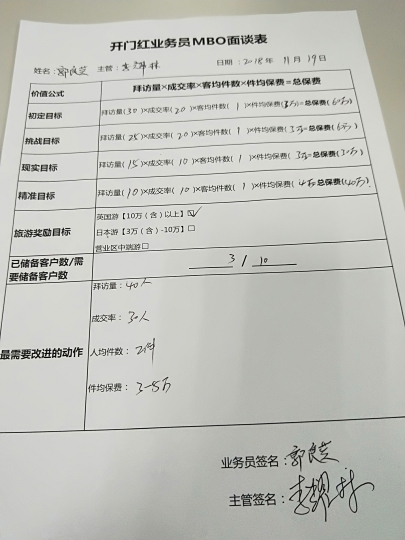 开门红业务员MBO面谈表
姓名:郭良芝 主管: 日期:2018年 11月 19日
价值公式 拜访量×成交率×客均件数×件均保费=总保费
初定目标 拜访量(30)×成交率(20)×客均件数(1)×件均保费(3万)=总保费(60万)
挑战目标 拜访量(25)×成交率(20)×客均件数(1)×件均保费(3万)=总保费(6万)
现实目标 拜访量(15)×成交率(10)×客均件数(1)×件均保费(3万)=总保费(30万)
精准目标 拜访量(10)×成交率(10)×客均件数(1)×件均保费(4万)总保费(40万)
旅游奖励目标
英国游【10万(含)以上】☑
日本游【3万(含)-10万】□
营业区中端游□
已储备客户数/需要储备客户数 3/10
最需要改进的动作
拜访量:40人
成交率:30人
人均件数:2件
件均保费:3-5万
业务员签名:郭良芝
主管签名: